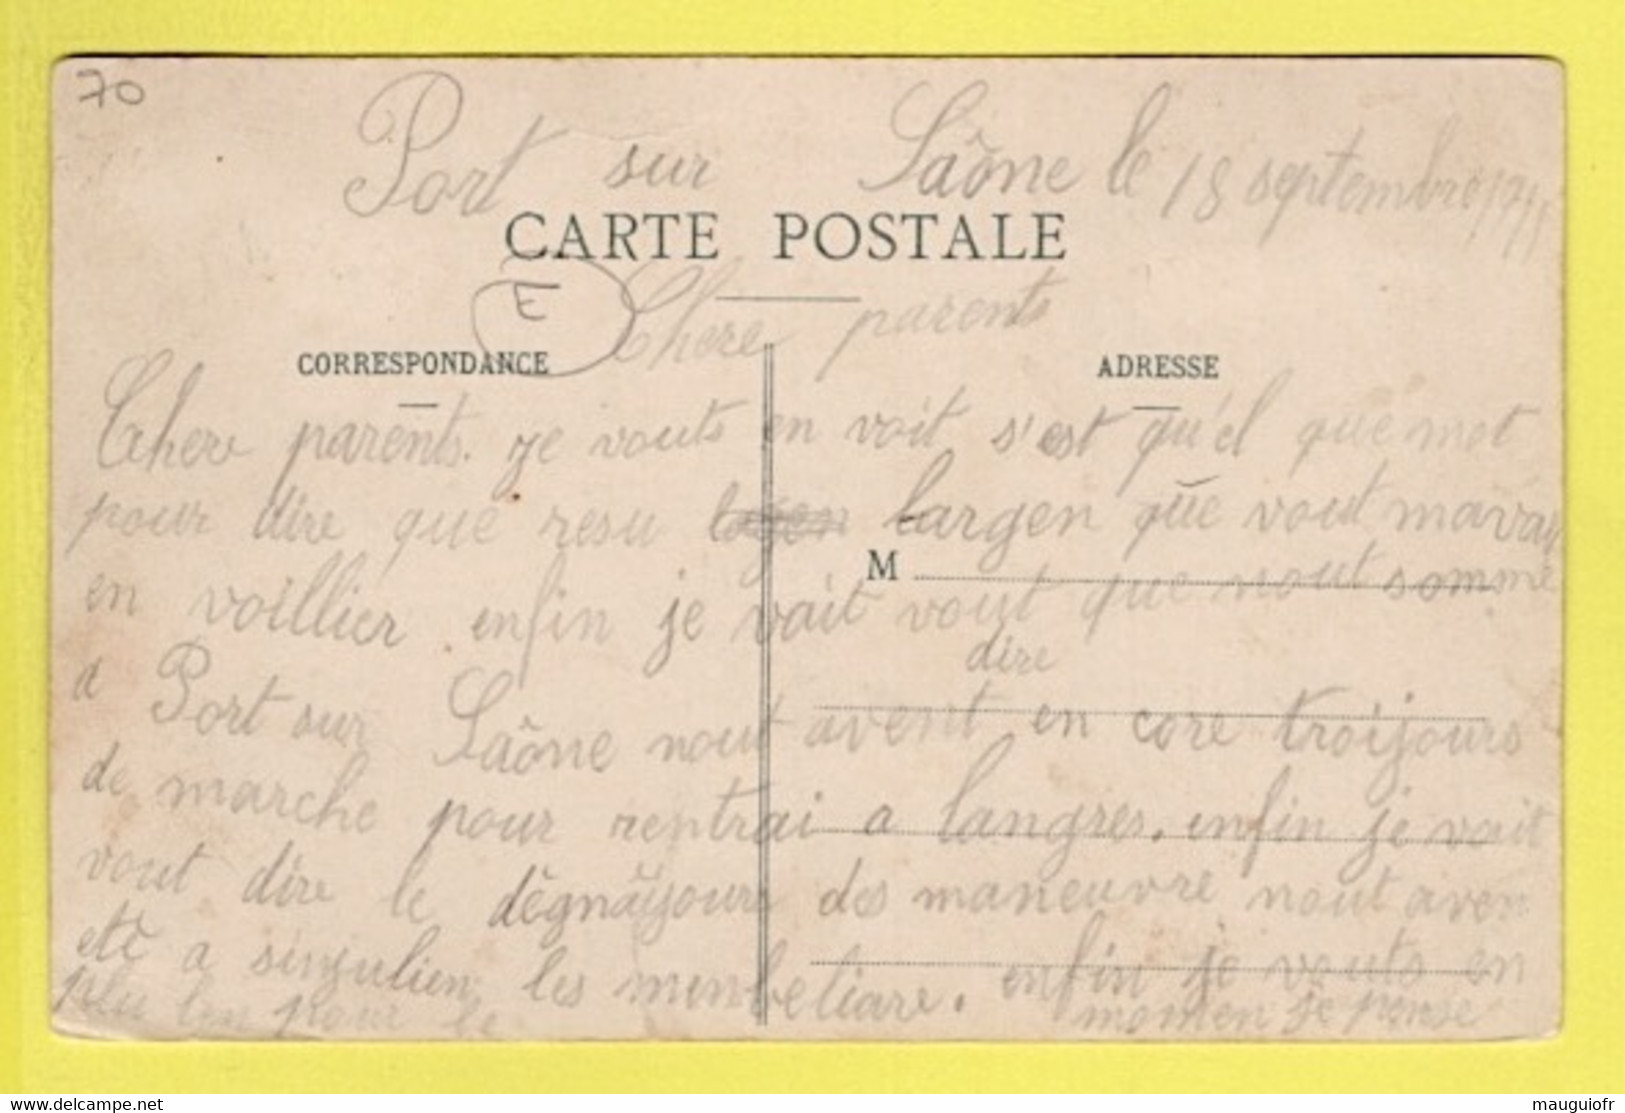 70
Port sur Saône le 18 septembre 1911
CARTE POSTALE
E
Chere parents
CORRESPONDANCE
ADRESSE
Chere parents. je vouts en voit s'est qu'èl que mot
pour dire que resu largen que vout mavai
M
en voillier. enfin je vait vout que nout somme
dire
a Port sur Saône nout avent en core troijours
de marche pour rentrai a langres. enfin je vait
vout dire le dêgnâijours des maneuvre nout aven
etè a singulien les monbeliare. enfin je vouts en
plu lon pour le momen je pense
mauguiofr